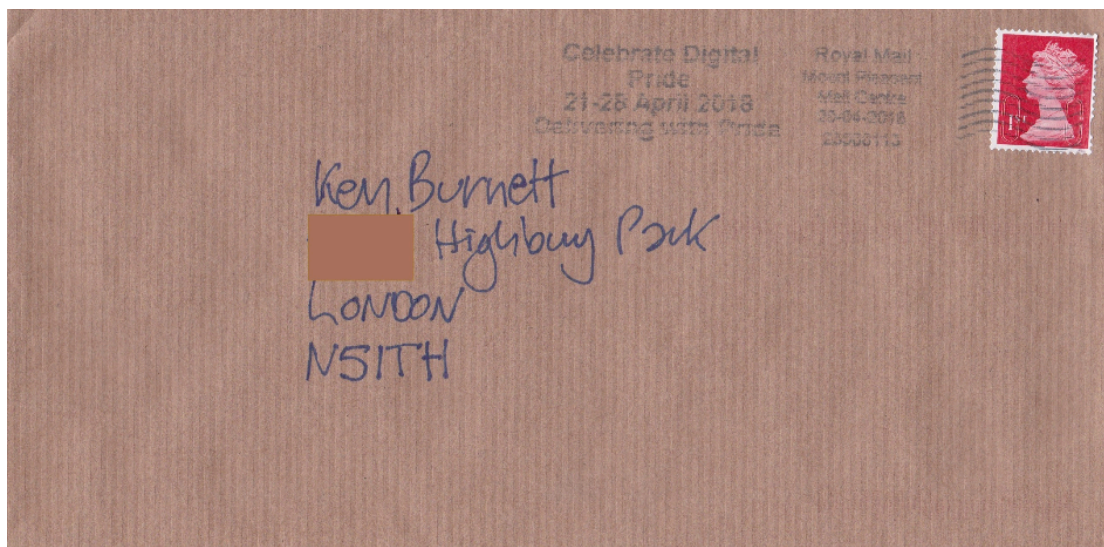 Celebrate Digital
Pride
21-28 April 2018
Delivering with Pride
Royal Mail
Mount Pleasant
Mail Centre
20-04-2018
1st
Ken Burnett
Highbury Park
LONDON
N51TH